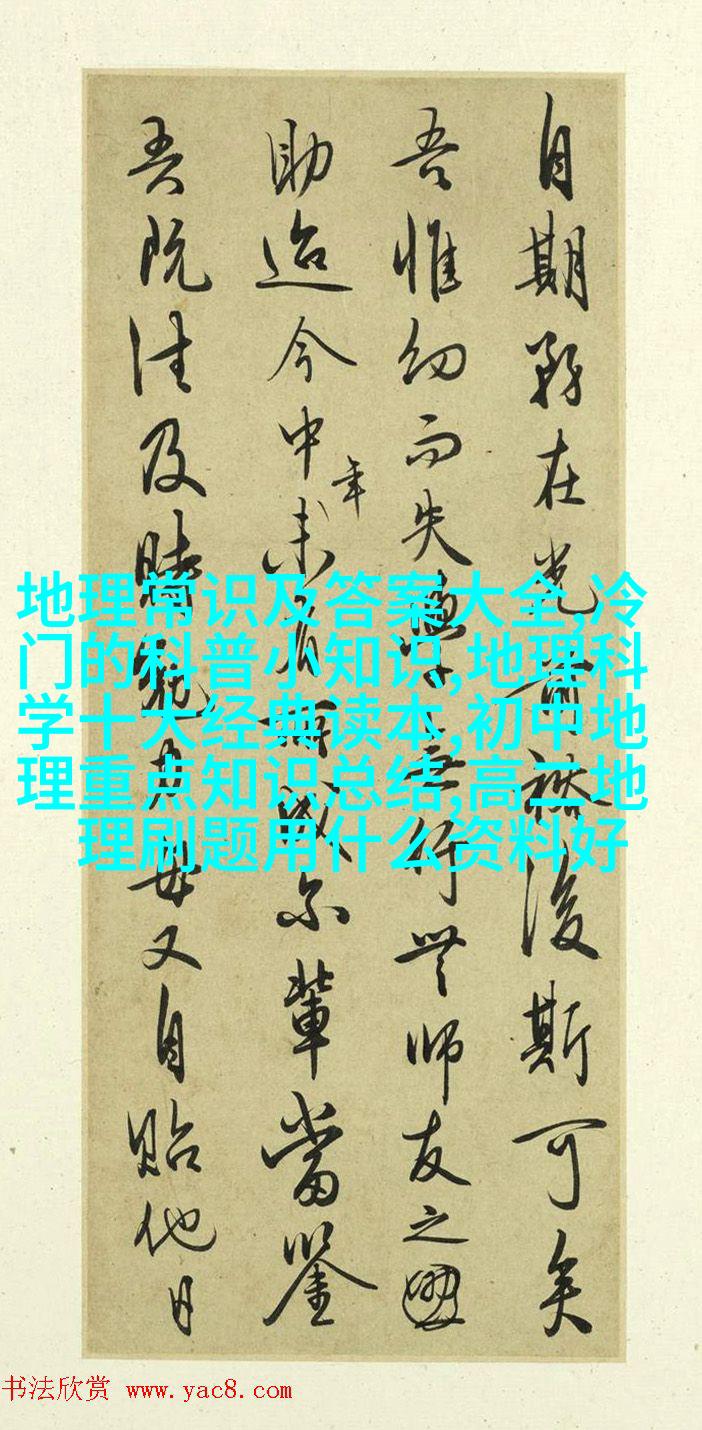 自期務在光前裕後斯可矣
吾惟幼而失學無行無師友之
助迨今中年未有所成尔輩當鑒
吾既往及時勉力毋又自貽他日
地理常识及答案大全,冷
门的科普小知识,地理科
学十大经典读本,初中地
理重点知识总结,高二地
理刷题用什么资料好
书法欣赏 www.yac8.com